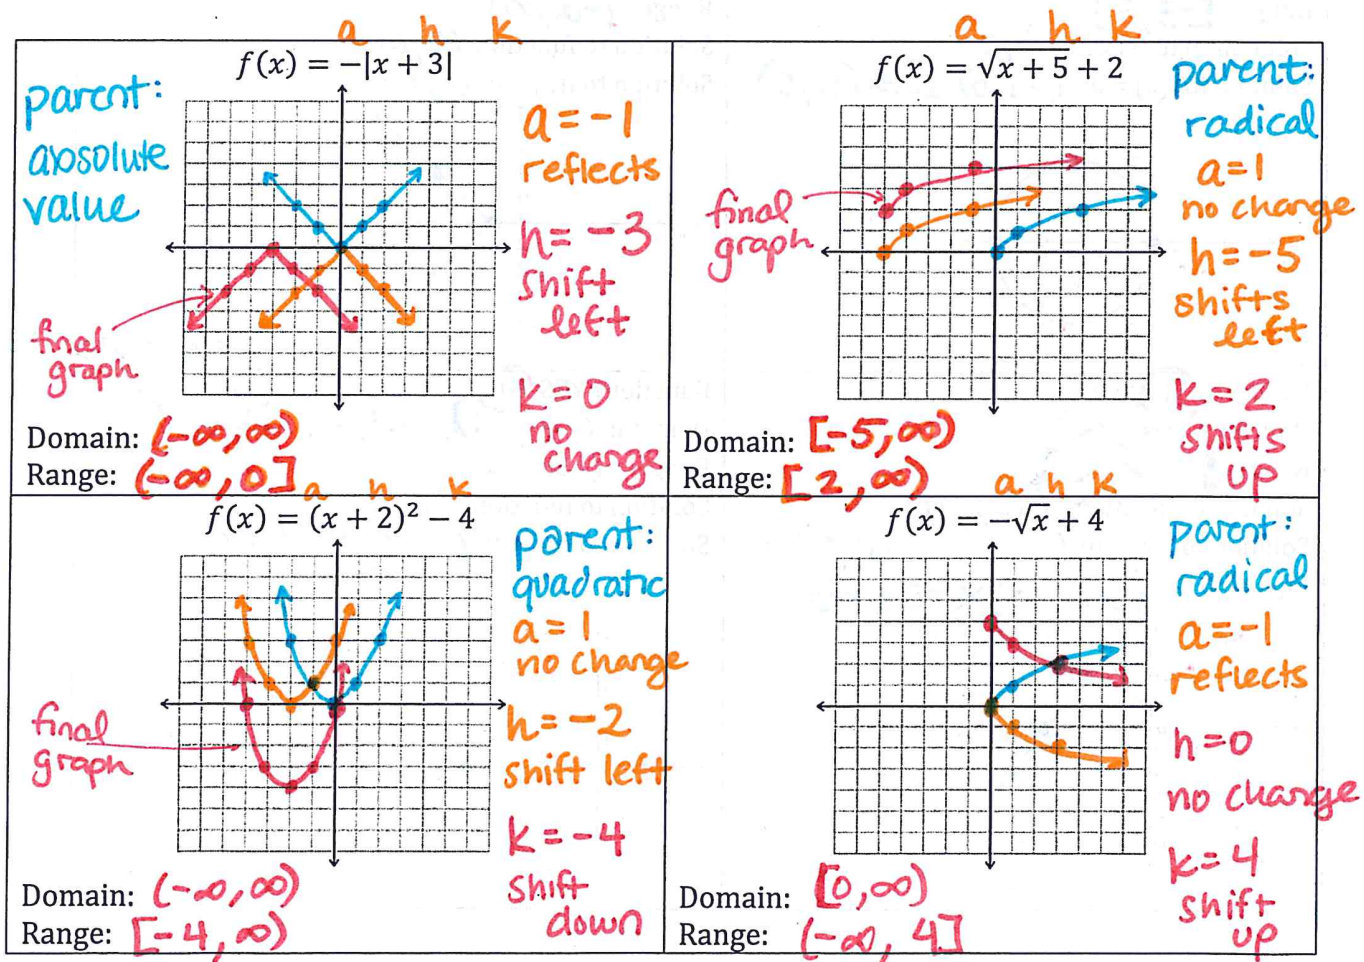 a h k
f(x) = −|x + 3|
parent:
absolute
value
a = -1
reflects
h = -3
shift
left
k = 0
no
change
final
graph
Domain: (-∞, ∞)
Range: (-∞, 0]
a h k
f(x) = √x + 5 + 2
parent:
radical
a = 1
no change
h = -5
shifts
left
k = 2
shifts
up
final
graph
Domain: [-5, ∞)
Range: [2, ∞)
a h k
f(x) = (x + 2)² − 4
parent:
quadratic
a = 1
no change
h = -2
shift left
k = -4
shift
down
final
graph
Domain: (-∞, ∞)
Range: [-4, ∞)
a h k
f(x) = −√x + 4
parent:
radical
a = -1
reflects
h = 0
no change
k = 4
shift
up
Domain: [0, ∞)
Range: (-∞, 4]